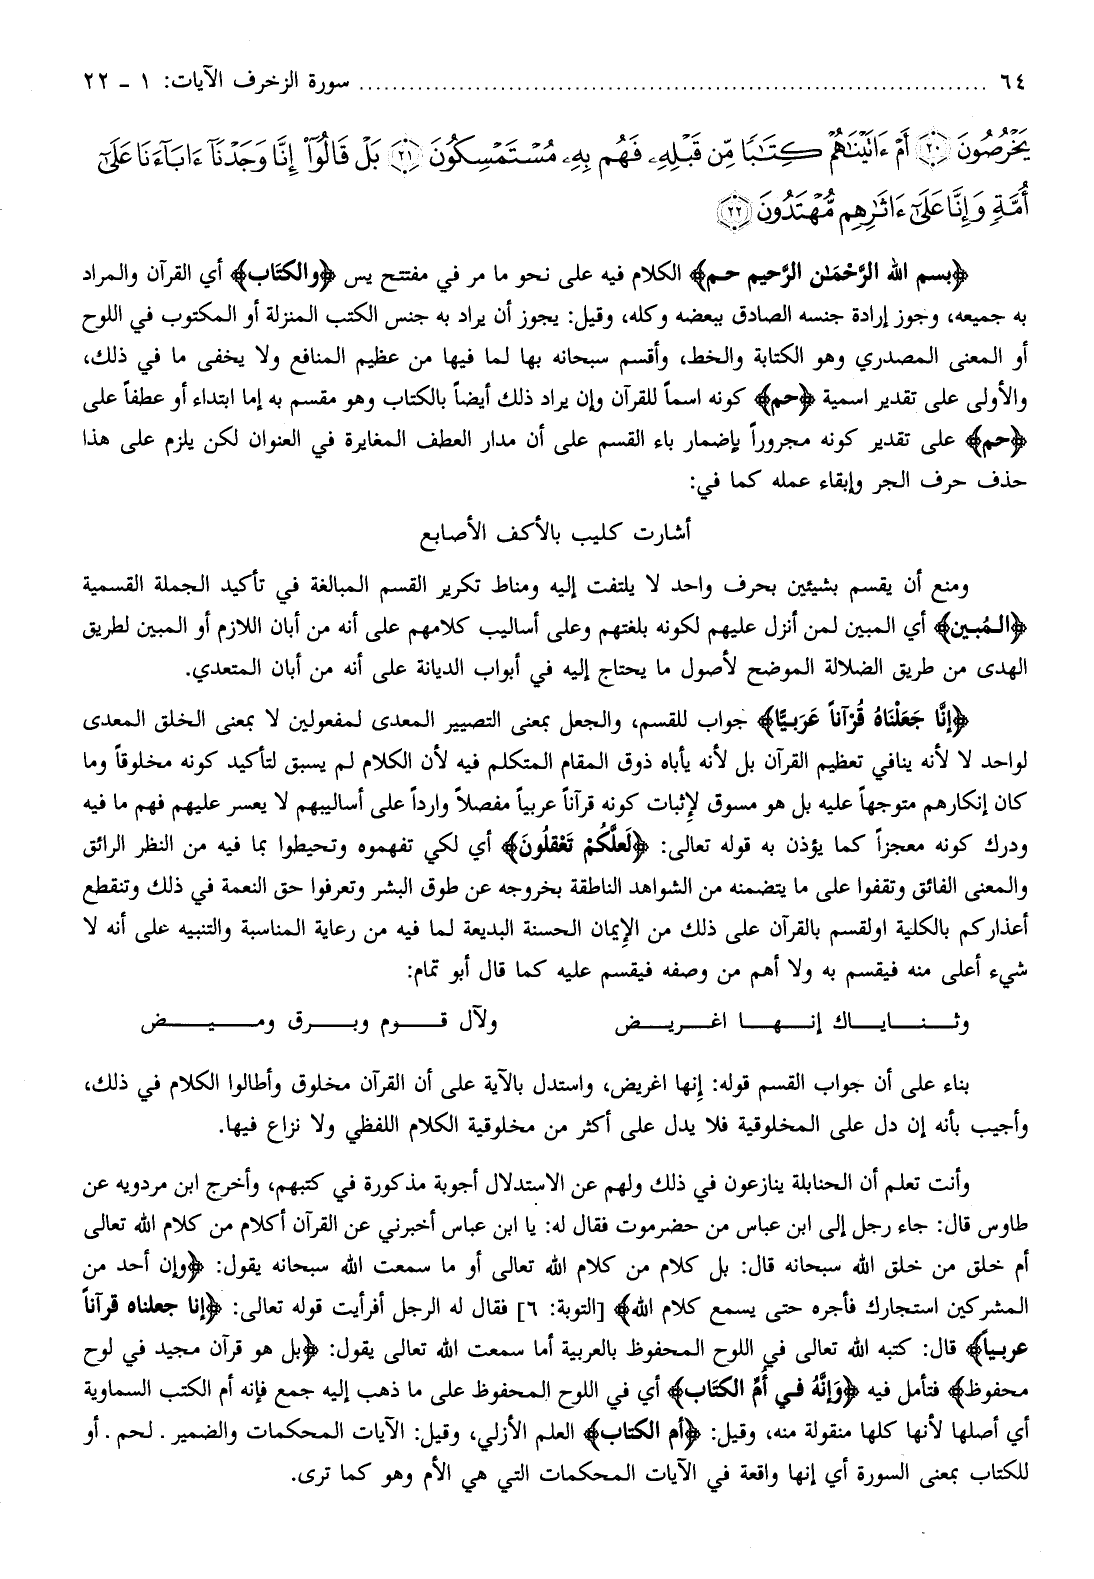 ٦٤ ........ سورة الزخرف الآيات: ١ ـ ٢٢
يَخْرُصُونَ ﴿٢٠﴾ أَمْ ءَاتَيْنَٰهُمْ كِتَٰبًا مِّن قَبْلِهِۦ فَهُم بِهِۦ مُسْتَمْسِكُونَ ﴿٢١﴾ بَلْ قَالُوٓا۟ إِنَّا وَجَدْنَآ ءَابَآءَنَا عَلَىٰٓ
أُمَّةٍ وَإِنَّا عَلَىٰٓ ءَاثَٰرِهِم مُّهْتَدُونَ ﴿٢٢﴾
﴿بسم الله الرَّحْمَان الرَّحيم حم﴾ الكلام فيه على نحو ما مر في مفتتح يس ﴿والكتَاب﴾ أي القرآن والمراد
به جميعه، وجوز إرادة جنسه الصادق ببعضه وكله، وقيل: يجوز أن يراد به جنس الكتب المنزلة أو المكتوب في اللوح
أو المعنى المصدري وهو الكتابة والخط، وأقسم سبحانه بها لما فيها من عظيم المنافع ولا يخفى ما في ذلك،
والأولى على تقدير اسمية ﴿حم﴾ كونه اسماً للقرآن وإن يراد ذلك أيضاً بالكتاب وهو مقسم به إما ابتداء أو عطفاً على
﴿حم﴾ على تقدير كونه مجروراً بإضمار باء القسم على أن مدار العطف المغايرة في العنوان لكن يلزم على هذا
حذف حرف الجر وإبقاء عمله كما في:
أشارت كليب بالأكف الأصابع
ومنع أن يقسم بشيئين بحرف واحد لا يلتفت إليه ومناط تكرير القسم المبالغة في تأكيد الجملة القسمية
﴿المُبين﴾ أي المبين لمن أنزل عليهم لكونه بلغتهم وعلى أساليب كلامهم على أنه من أبان اللازم أو المبين لطريق
الهدى من طريق الضلالة الموضح لأصول ما يحتاج إليه في أبواب الديانة على أنه من أبان المتعدي.
﴿إنَّا جَعَلْنَاهُ قُرْآناً عَرَبيًّا﴾ جواب للقسم، والجعل بمعنى التصيير المعدى لمفعولين لا بمعنى الخلق المعدى
لواحد لا لأنه ينافي تعظيم القرآن بل لأنه يأباه ذوق المقام المتكلم فيه لأن الكلام لم يسبق لتأكيد كونه مخلوقاً وما
كان إنكارهم متوجهاً عليه بل هو مسوق لإثبات كونه قرآناً عربياً مفصلاً وارداً على أساليبهم لا يعسر عليهم فهم ما فيه
ودرك كونه معجزاً كما يؤذن به قوله تعالى: ﴿لَعلَّكُمْ تَعْقلُونَ﴾ أي لكي تفهموه وتحيطوا بما فيه من النظر الرائق
والمعنى الفائق وتقفوا على ما يتضمنه من الشواهد الناطقة بخروجه عن طوق البشر وتعرفوا حق النعمة في ذلك وتنقطع
أعذاركم بالكلية اولقسم بالقرآن على ذلك من الإيمان الحسنة البديعة لما فيه من رعاية المناسبة والتنبيه على أنه لا
شيء أعلى منه فيقسم به ولا أهم من وصفه فيقسم عليه كما قال أبو تمام:
وثـنـايـاك إنـهـا اغـريـض ولآل قـوم وبـرق ومـيـض
بناء على أن جواب القسم قوله: إنها اغريض، واستدل بالآية على أن القرآن مخلوق وأطالوا الكلام في ذلك،
وأجيب بأنه إن دل على المخلوقية فلا يدل على أكثر من مخلوقية الكلام اللفظي ولا نزاع فيها.
وأنت تعلم أن الحنابلة ينازعون في ذلك ولهم عن الاستدلال أجوبة مذكورة في كتبهم، وأخرج ابن مردويه عن
طاوس قال: جاء رجل إلى ابن عباس من حضرموت فقال له: يا ابن عباس أخبرني عن القرآن أكلام من كلام الله تعالى
أم خلق من خلق الله سبحانه قال: بل كلام من كلام الله تعالى أو ما سمعت الله سبحانه يقول: ﴿وإن أحد من
المشركين استجارك فأجره حتى يسمع كلام الله﴾ [التوبة: ٦] فقال له الرجل أفرأيت قوله تعالى: ﴿إنا جعلناه قرآناً
عربياً﴾ قال: كتبه الله تعالى في اللوح المحفوظ بالعربية أما سمعت الله تعالى يقول: ﴿بل هو قرآن مجيد في لوح
محفوظ﴾ فتأمل فيه ﴿وَإنَّهُ في أُمِّ الكتَاب﴾ أي في اللوح المحفوظ على ما ذهب إليه جمع فإنه أم الكتب السماوية
أي أصلها لأنها كلها منقولة منه، وقيل: ﴿أم الكتاب﴾ العلم الأزلي، وقيل: الآيات المحكمات والضمير . لحم . أو
للكتاب بمعنى السورة أي إنها واقعة في الآيات المحكمات التي هي الأم وهو كما ترى.